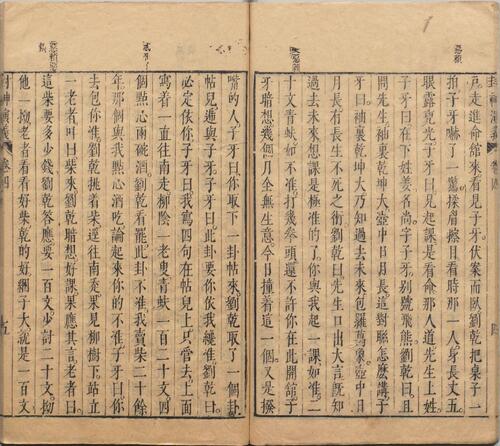 戸走進命館來看見子牙伏案而臥劉乾把桌子一
拍子牙嚇了一驚揉眉擦目看時那一人身長丈五
眼露兇光子牙曰兄起課是看命那人道先生上姓
子牙曰在下姓姜名尚字子牙別號飛熊劉乾曰且
問先生袖裏乾坤大壺中日月長這對聯怎麼講子
牙曰袖裏乾坤大乃知過去未來包羅萬象壺中日
月長有長生不死之術劉乾曰先生口出大言既知
過去未來想課是極准的了你與我起一課如准二
十文青蚨如不准打幾拳頭還不許你在此開館子
牙暗想幾個月全無生意今日撞着這一個又是撥
嘴的人子牙曰你取下一卦帖來劉乾取了一個卦
帖兒遞與子牙子牙曰此卦要你依我纔准劉乾曰
必定依你子牙曰我寫四句在帖兒上只管去上面
寫着一直往南走柳陰一老叟青蚨一百二十文四
個點心兩碗酒劉乾看罷此卦不准我賣柴二十餘
年那個與我點心酒吃論起來你的不准子牙曰你
去包你准劉乾挑着柴逕往南來果見柳樹下站立
一老者叫曰柴來劉乾暗想好課果應其言老者曰
這柴要多少錢劉乾答應要一百文少討二十文拗
他一拗老者看看好柴乾的好綑子大就是一百文
封神演義 卷四 五